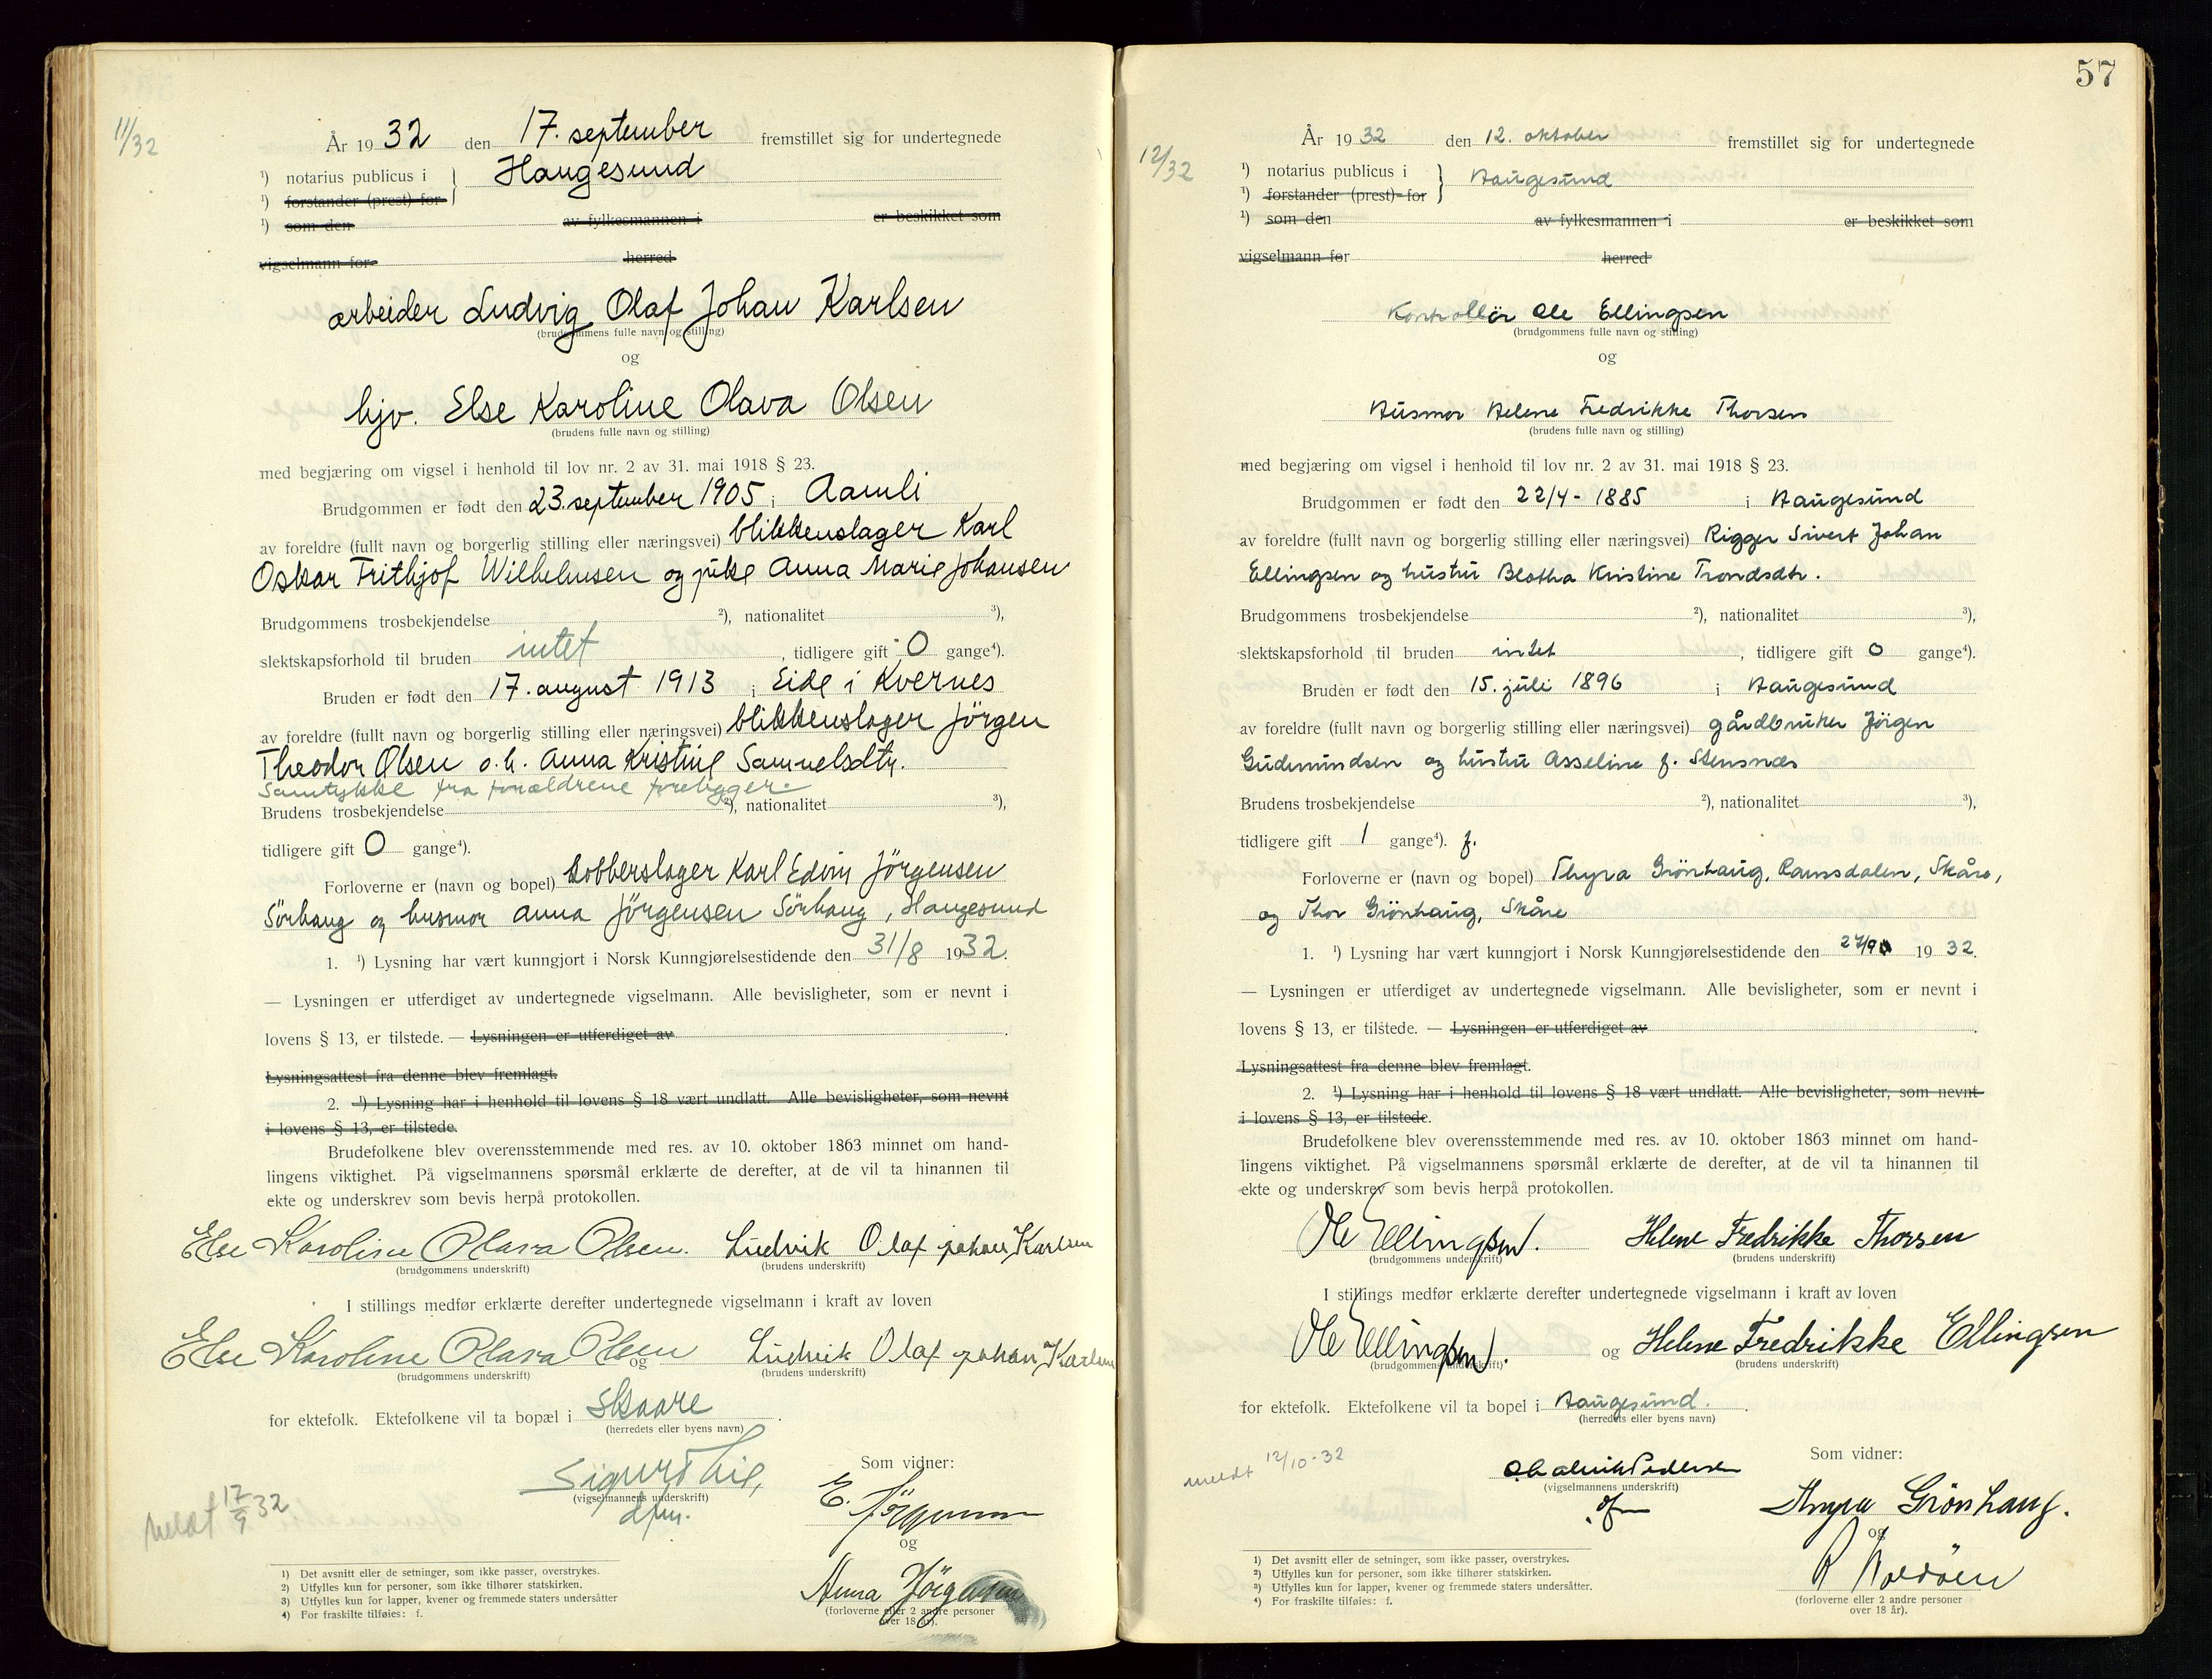 11/32
År 1932 den 17. september fremstillet sig for undertegnede
¹) notarius publicus i } Haugesund
¹) forstander (prest) for
¹) som den av fylkesmannen i er beskikket som
vigselmann for herred
arbeider Ludvig Olaf Johan Karlsen
(brudgommens fulle navn og stilling)
og
hjv. Else Karoline Olava Olsen
(brudens fulle navn og stilling)
med begjæring om vigsel i henhold til lov nr. 2 av 31. mai 1918 § 23.
Brudgommen er født den 23. september 1905 i Aamli
av foreldre (fullt navn og borgerlig stilling eller næringsvei) blikkenslager Karl
Oskar Frithjof Wilhelmsen og pike Anna Marie Johansen
Brudgommens trosbekjendelse ²), nationalitet ³),
slektskapsforhold til bruden intet, tidligere gift 0 gange⁴).
Bruden er født den 17. august 1913 i Eide i Kvernes
av foreldre (fullt navn og borgerlig stilling eller næringsvei) blikkenslager Jörgen
Theodor Olsen o. h. Anna Kristine Samuelsdtr.
Samtykke fra forældrene foreligger.
Brudens trosbekjendelse ²), nationalitet ³),
tidligere gift 0 gange⁴).
Forloverne er (navn og bopel) kobberslager Karl Edvin Jörgensen
Sörhaug og husmor Anna Jörgensen Sörhaug, Haugesund
1. ¹) Lysning har vært kunngjort i Norsk Kunngjørelsestidende den 31/8 1932.
— Lysningen er utferdiget av undertegnede vigselmann. Alle bevisligheter, som er nevnt i
lovens § 13, er tilstede. — Lysningen er utferdiget av .
Lysningsattest fra denne blev fremlagt.
2. ¹) Lysning har i henhold til lovens § 18 vært undlatt. Alle bevisligheter, som nevnt
i lovens § 13, er tilstede.
Brudefolkene blev overensstemmende med res. av 10. oktober 1863 minnet om hand-
lingens viktighet. På vigselmannens spørsmål erklærte de derefter, at de vil ta hinannen til
ekte og underskrev som bevis herpå protokollen.
Else Karoline Olava Olsen. Ludvik Olaf Johan Karlsen
(brudgommens underskrift) (brudens underskrift)
I stillings medfør erklærte derefter undertegnede vigselmann i kraft av loven
Else Karoline Olava Olsen og Ludvik Olaf Johan Karlsen
(brudgommens underskrift) (brudens underskrift)
for ektefolk. Ektefolkene vil ta bopæl i Skaare.
(herredets eller byens navn)
Sigurd Lie, Som vidner:
(vigselmannens underskrift) E. Jörgensen
dfm. og
meldt 17/9 32
Anna Jörgensen
(forloverne eller 2 andre personer
over 18 år).
1) Det avsnitt eller de setninger, som ikke passer, overstrykes.
2) Utfylles kun for personer, som ikke tilhører statskirken.
3) Utfylles kun for lapper, kvener og fremmede staters undersåtter
4) For fraskilte tilføies: f.
57
12/32
År 1932 den 12. oktober fremstillet sig for undertegnede
¹) notarius publicus i } Haugesund
¹) forstander (prest) for
¹) som den av fylkesmannen i er beskikket som
vigselmann for herred
Kontrollör Ole Ellingsen
(brudgommens fulle navn og stilling)
og
Husmor Helene Fredrikke Thorsen
(brudens fulle navn og stilling)
med begjæring om vigsel i henhold til lov nr. 2 av 31. mai 1918 § 23.
Brudgommen er født den 22/4 - 1885 i Haugesund
av foreldre (fullt navn og borgerlig stilling eller næringsvei) Rigger Sivert Johan
Ellingsen og hustru Kristine Trondsdtr.
Brudgommens trosbekjendelse ²), nationalitet ³),
slektskapsforhold til bruden intet, tidligere gift 0 gange⁴).
Bruden er født den 15. juli 1896 i Haugesund
av foreldre (fullt navn og borgerlig stilling eller næringsvei) gårdbruker Jörgen
Gudmundsen og hustru Asseline f. Stensnes
Brudens trosbekjendelse ²), nationalitet ³),
tidligere gift 1 gange⁴). f.
Forloverne er (navn og bopel) Thyra Grönhaug, Ramsdalen, Skåre,
og Thor Grönhaug, Skåre
1. ¹) Lysning har vært kunngjort i Norsk Kunngjørelsestidende den 27/9 1932.
— Lysningen er utferdiget av undertegnede vigselmann. Alle bevisligheter, som er nevnt i
lovens § 13, er tilstede. — Lysningen er utferdiget av .
Lysningsattest fra denne blev fremlagt.
2. ¹) Lysning har i henhold til lovens § 18 vært undlatt. Alle bevisligheter, som nevnt
i lovens § 13, er tilstede.
Brudefolkene blev overensstemmende med res. av 10. oktober 1863 minnet om hand-
lingens viktighet. På vigselmannens spørsmål erklærte de derefter, at de vil ta hinannen til
ekte og underskrev som bevis herpå protokollen.
Ole Ellingsen. Helene Fredrikke Thorsen
(brudgommens underskrift) (brudens underskrift)
I stillings medfør erklærte derefter undertegnede vigselmann i kraft av loven
Ole Ellingsen. og Helene Fredrikke Ellingsen
(brudgommens underskrift) (brudens underskrift)
for ektefolk. Ektefolkene vil ta bopel i Haugesund.
(herredets eller byens navn)
meldt 12/10-32
Pedersen Som vidner:
(vigselmannens underskrift)
Thyra Grönhaug.
og
R
(forloverne eller 2 andre personer
over 18 år).
1) Det avsnitt eller de setninger, som ikke passer, overstrykes.
2) Utfylles kun for personer, som ikke tilhører statskirken.
3) Utfylles kun for lapper, kvener og fremmede staters undersåtter.
4) For fraskilte tilføies: f.